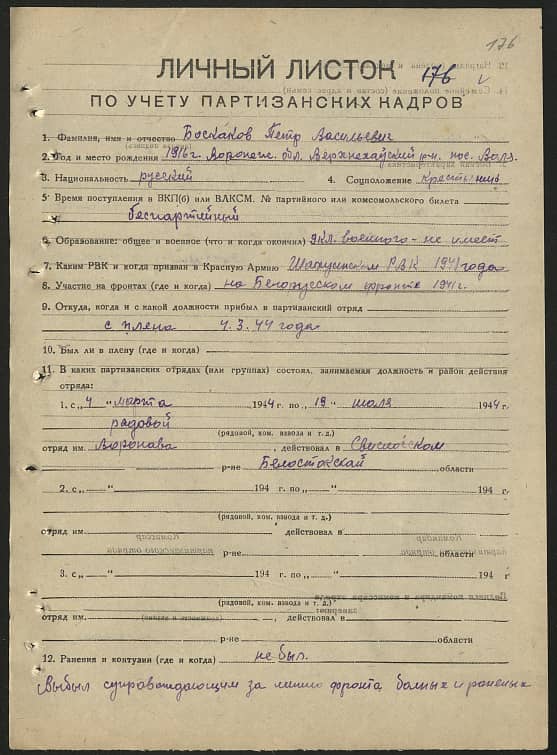 176
ЛИЧНЫЙ ЛИСТОК 176
ПО УЧЕТУ ПАРТИЗАНСКИХ КАДРОВ
1. Фамилия, имя и отчество Боскаков Петр Васильевич
2. Год и место рождения 1916 г. Воронеж. обл. Верхнехавский р-н. пос. Воля
3. Национальность русский 4. Соцположение крестьянин
5. Время поступления в ВКП(б) или ВЛКСМ. № партийного или комсомольского билета
беспартийный
6. Образование: общее и военное (что и когда окончил) 9кл. военного - не имеет
7. Каким РВК и когда призван в Красную Армию РВК 1941 года
8. Участие на фронтах (где и когда) на Белорусском фронте 1941 г.
9. Откуда, когда и с какой должности прибыл в партизанский отряд
с плена 4.3.44 года
10. Был ли в плену (где и когда)
11. В каких партизанских отрядах (или группах) состоял, занимаемая должность и район действия
отряда:
1. с „4 “ марта 1944 г. по „19 “ июля 1944 г.
рядовой
(рядовой, ком. взвода и т. д.)
отряд им. Воронава , действовал в Свислочском
р-не Белостокской области
2. с „ “ 194 г. по „ “ 194 г.
(рядовой, ком. взвода и т. д.)
отряд им. действовал в
р-не области
3. с „ “ 194 г. по „ “ 194 г
(рядовой, ком. взвода и т. д.)
отряд им. , действовал в
р-не области
12. Ранения и контузии (где и когда) не был.
Выбыл суправаждающим за линию фронта болных и раненых